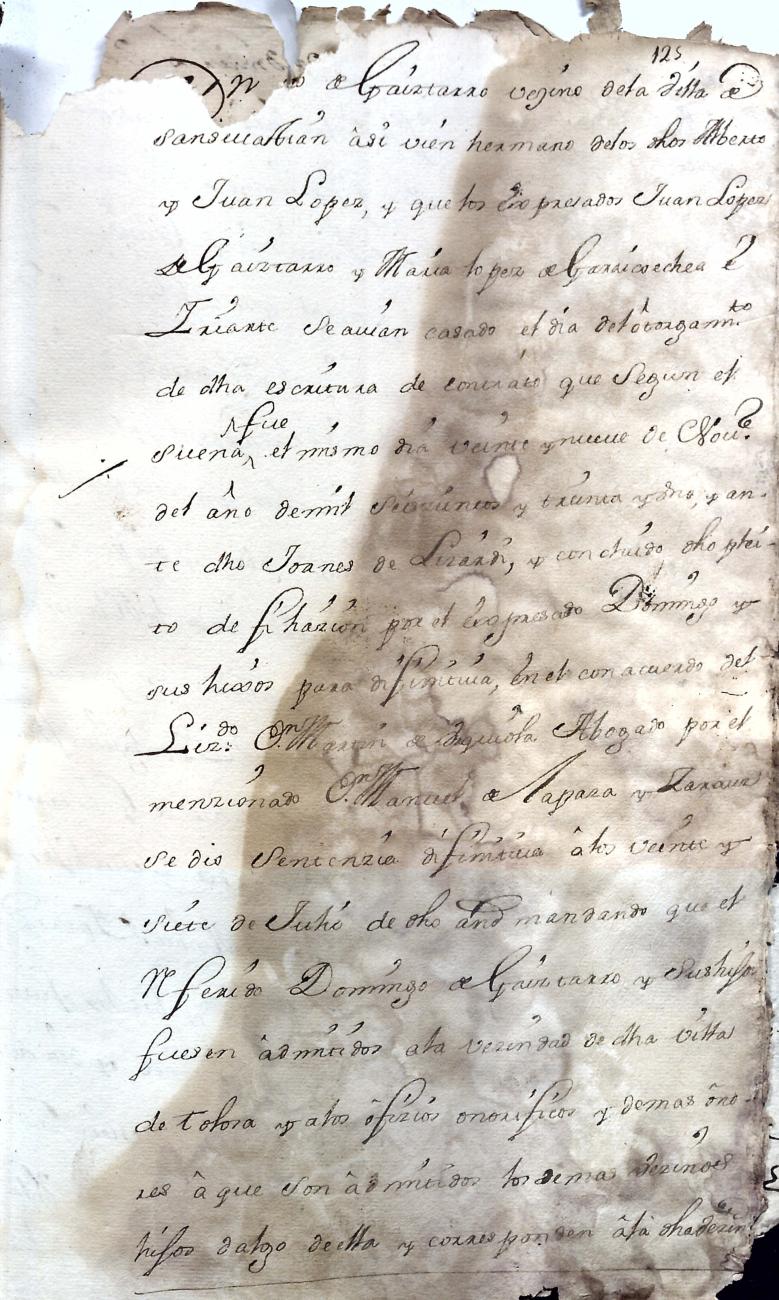 125
de Gaiztarro vezino dela Villa de
Sansevastian âsi vien hermano delos dhos Alberto
y Juan Lopez, y que los Expresados Juan Lopez
de Gaiztarro y Maria lopez de Garaicoechea e
Iriarte Seavian casado el dia del ôtorgamto
de dha escritura de contrato que Segun el
fue
suena el mismo dia veinte ynueve de Nove
del âño demil Seiscientos y treinta y dno, y an-
te dho Joanes de Lizardi, y concluido dho plei-
to de filiazion por el Expresado Domingo y
sus hixos para difinitiva, en el con acuerdo del
Lizdo Dn Martin de Abogado por el
menzionado Dn Manuel de Aapaza y Zarauz
se dio Sentenzia difinitiva âlos veinte y
siete de Julio de dho año mandando que el
Rferido Domingo de Gaiztarro y Sushijos
fuesen âdmitidos ala vezindad de dha villa
de Tolosa y alos ôfizios onorificos y demas ôno-
res âque son âdmitidos los demas vezinos
hijos dalgo deella y corresponden âla dha